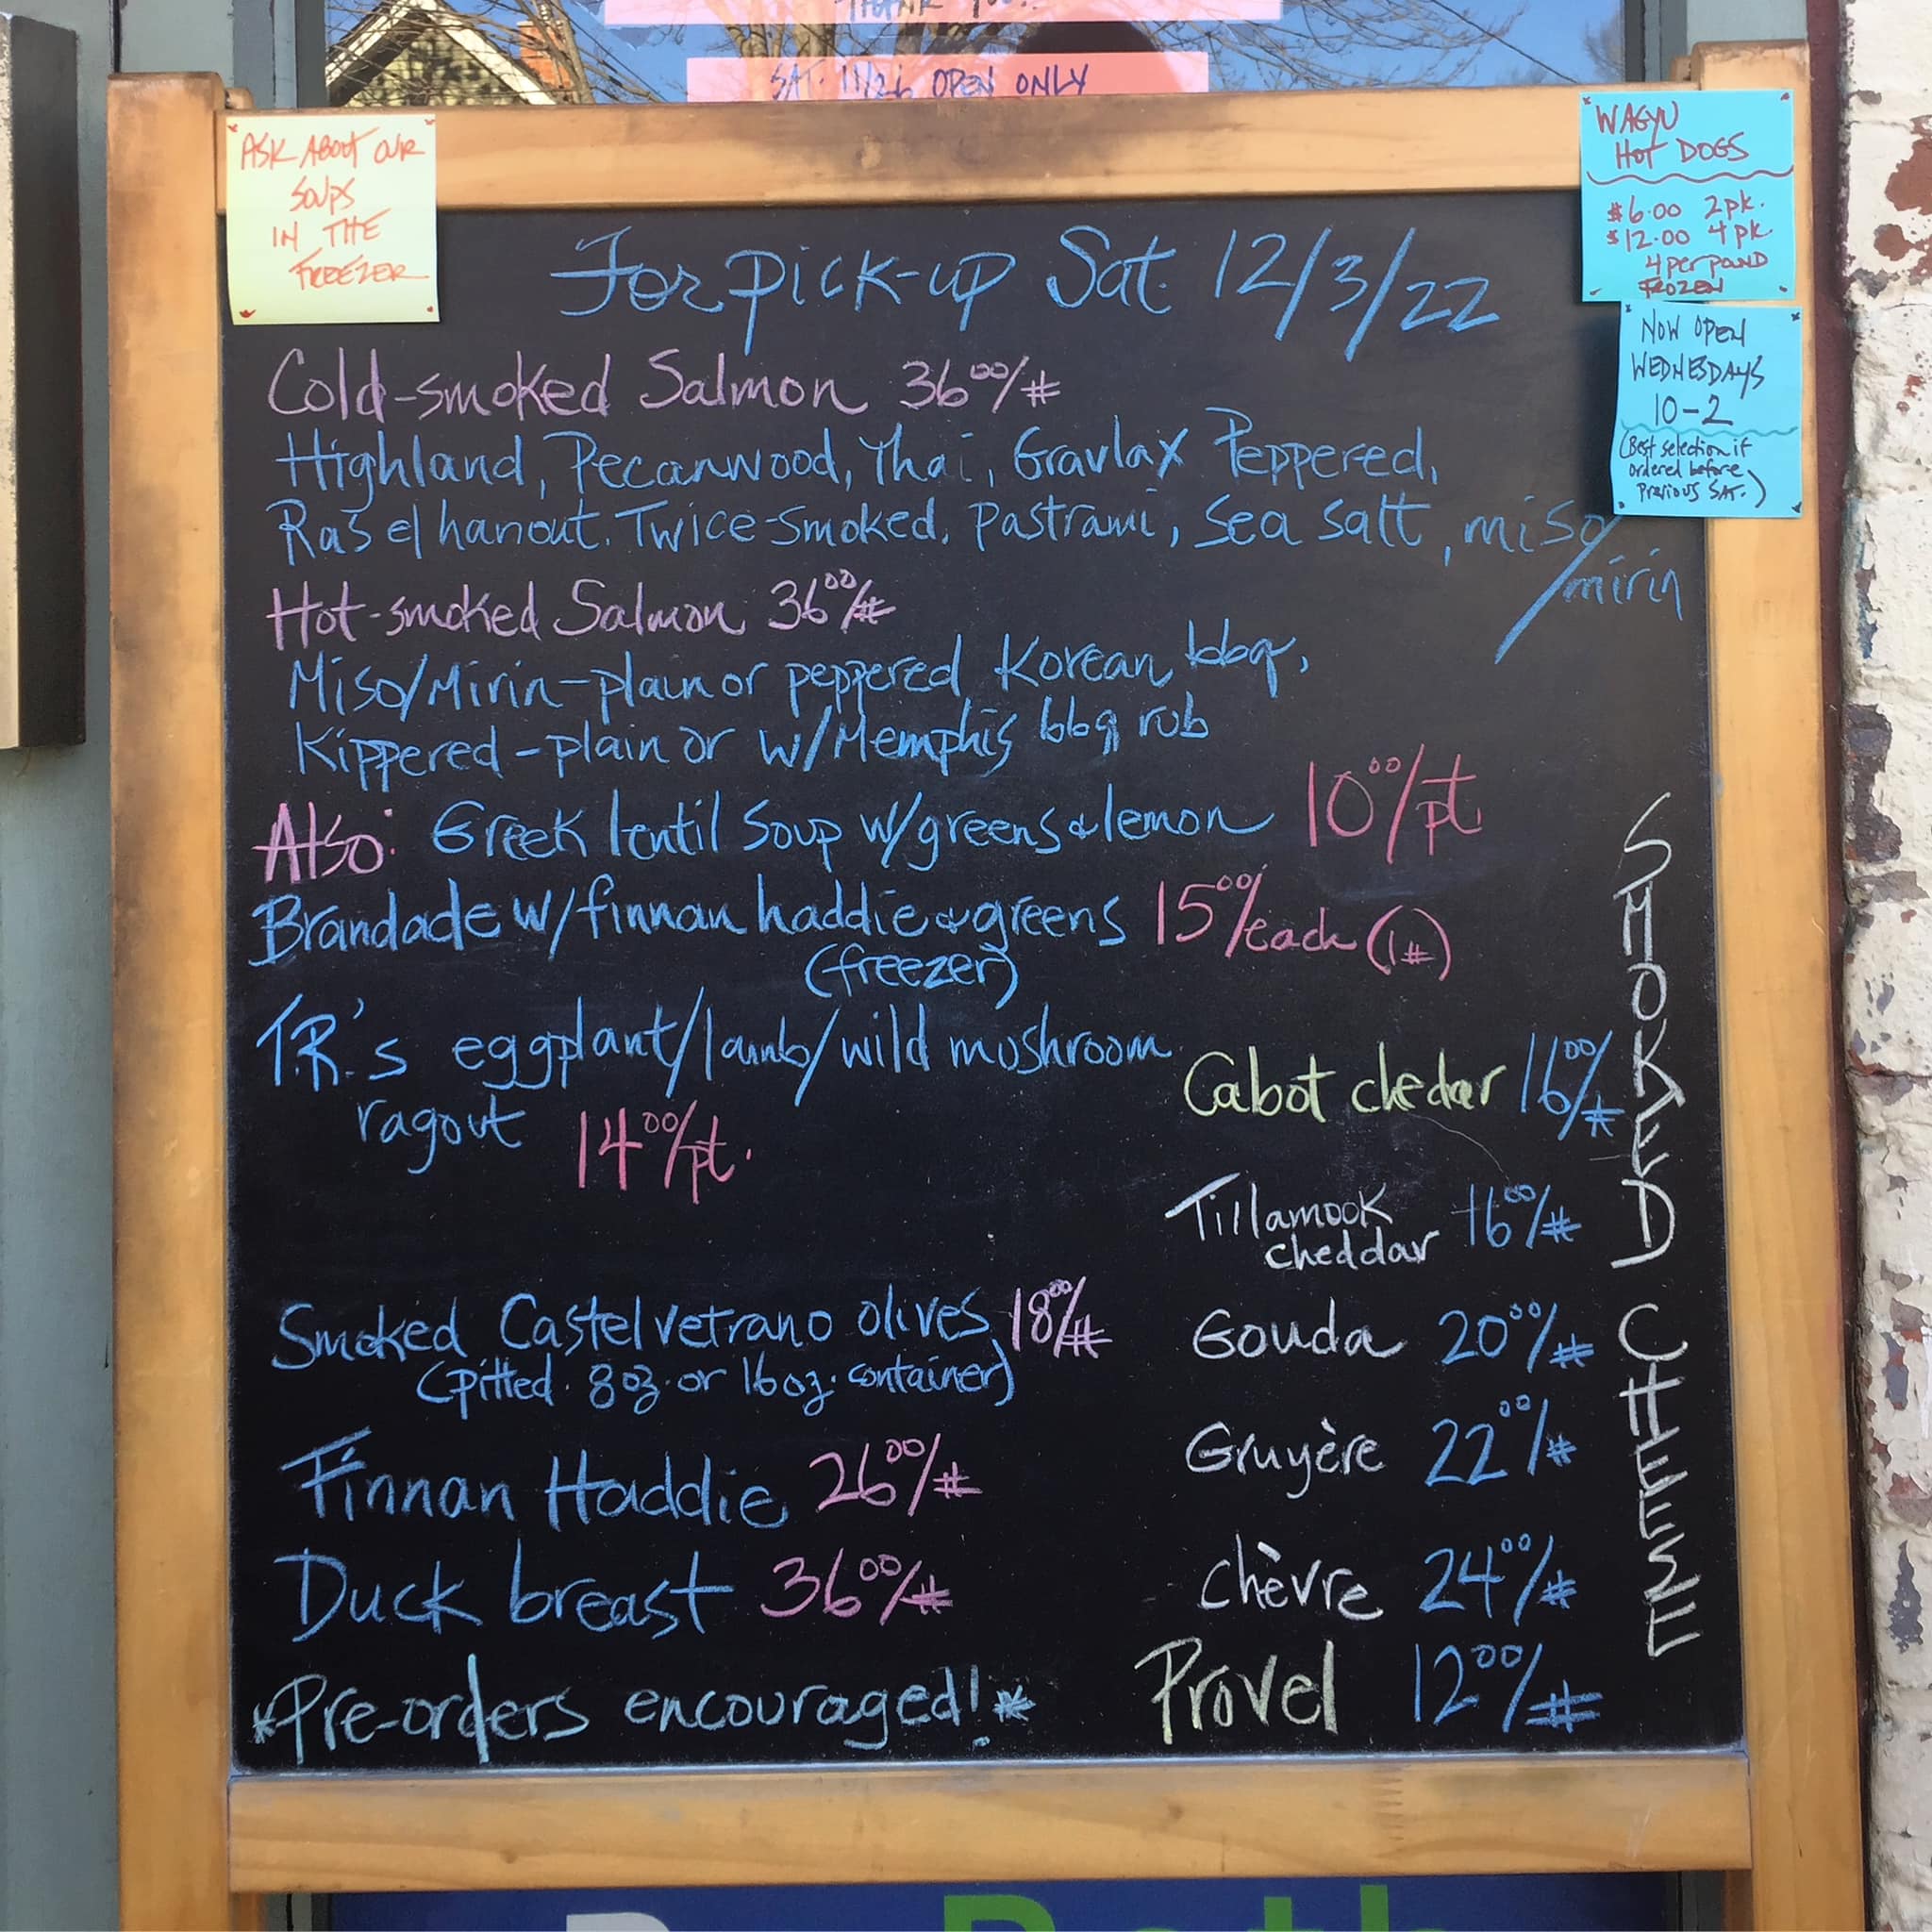 THANK YOU!!
SAT. 11/26 OPEN ONLY
ASK ABOUT OUR
SOUPS
IN THE
FREEZER
WAGYU
HOT DOGS
$6.00 2pk.
$12.00 4pk.
4 per pound
FROZEN
NOW OPEN
WEDNESDAYS
10-2
(Best selection if
ordered before
previous SAT.)
For pick-up Sat. 12/3/22
Cold-smoked Salmon 36.00/#
Highland, Pecanwood, Thai, Gravlax Peppered,
Ras el hanout. Twice-smoked, Pastrami, Sea Salt, miso/
mirin
Hot-smoked Salmon 36.00/#
Miso/Mirin-plain or peppered, Korean bbq,
Kippered-plain or w/Memphis bbq rub
Also: Greek lentil Soup w/greens & lemon 10.00/pt.
Brandade w/finnan haddie & greens 15.00/each (1#)
(freezer)
T.R.'s eggplant/lamb/wild mushroom
ragout 14.00/pt.
Smoked Castelvetrano olives 18.00/#
(pitted. 8oz. or 16oz. container)
Finnan Haddie 26.00/#
Duck breast 36.00/#
*Pre-orders encouraged!*
SMOKED CHEESE
Cabot chedar 16.00/#
Tillamook
cheddar 16.00/#
Gouda 20.00/#
Gruyère 22.00/#
chèvre 24.00/#
Provel 12.00/#